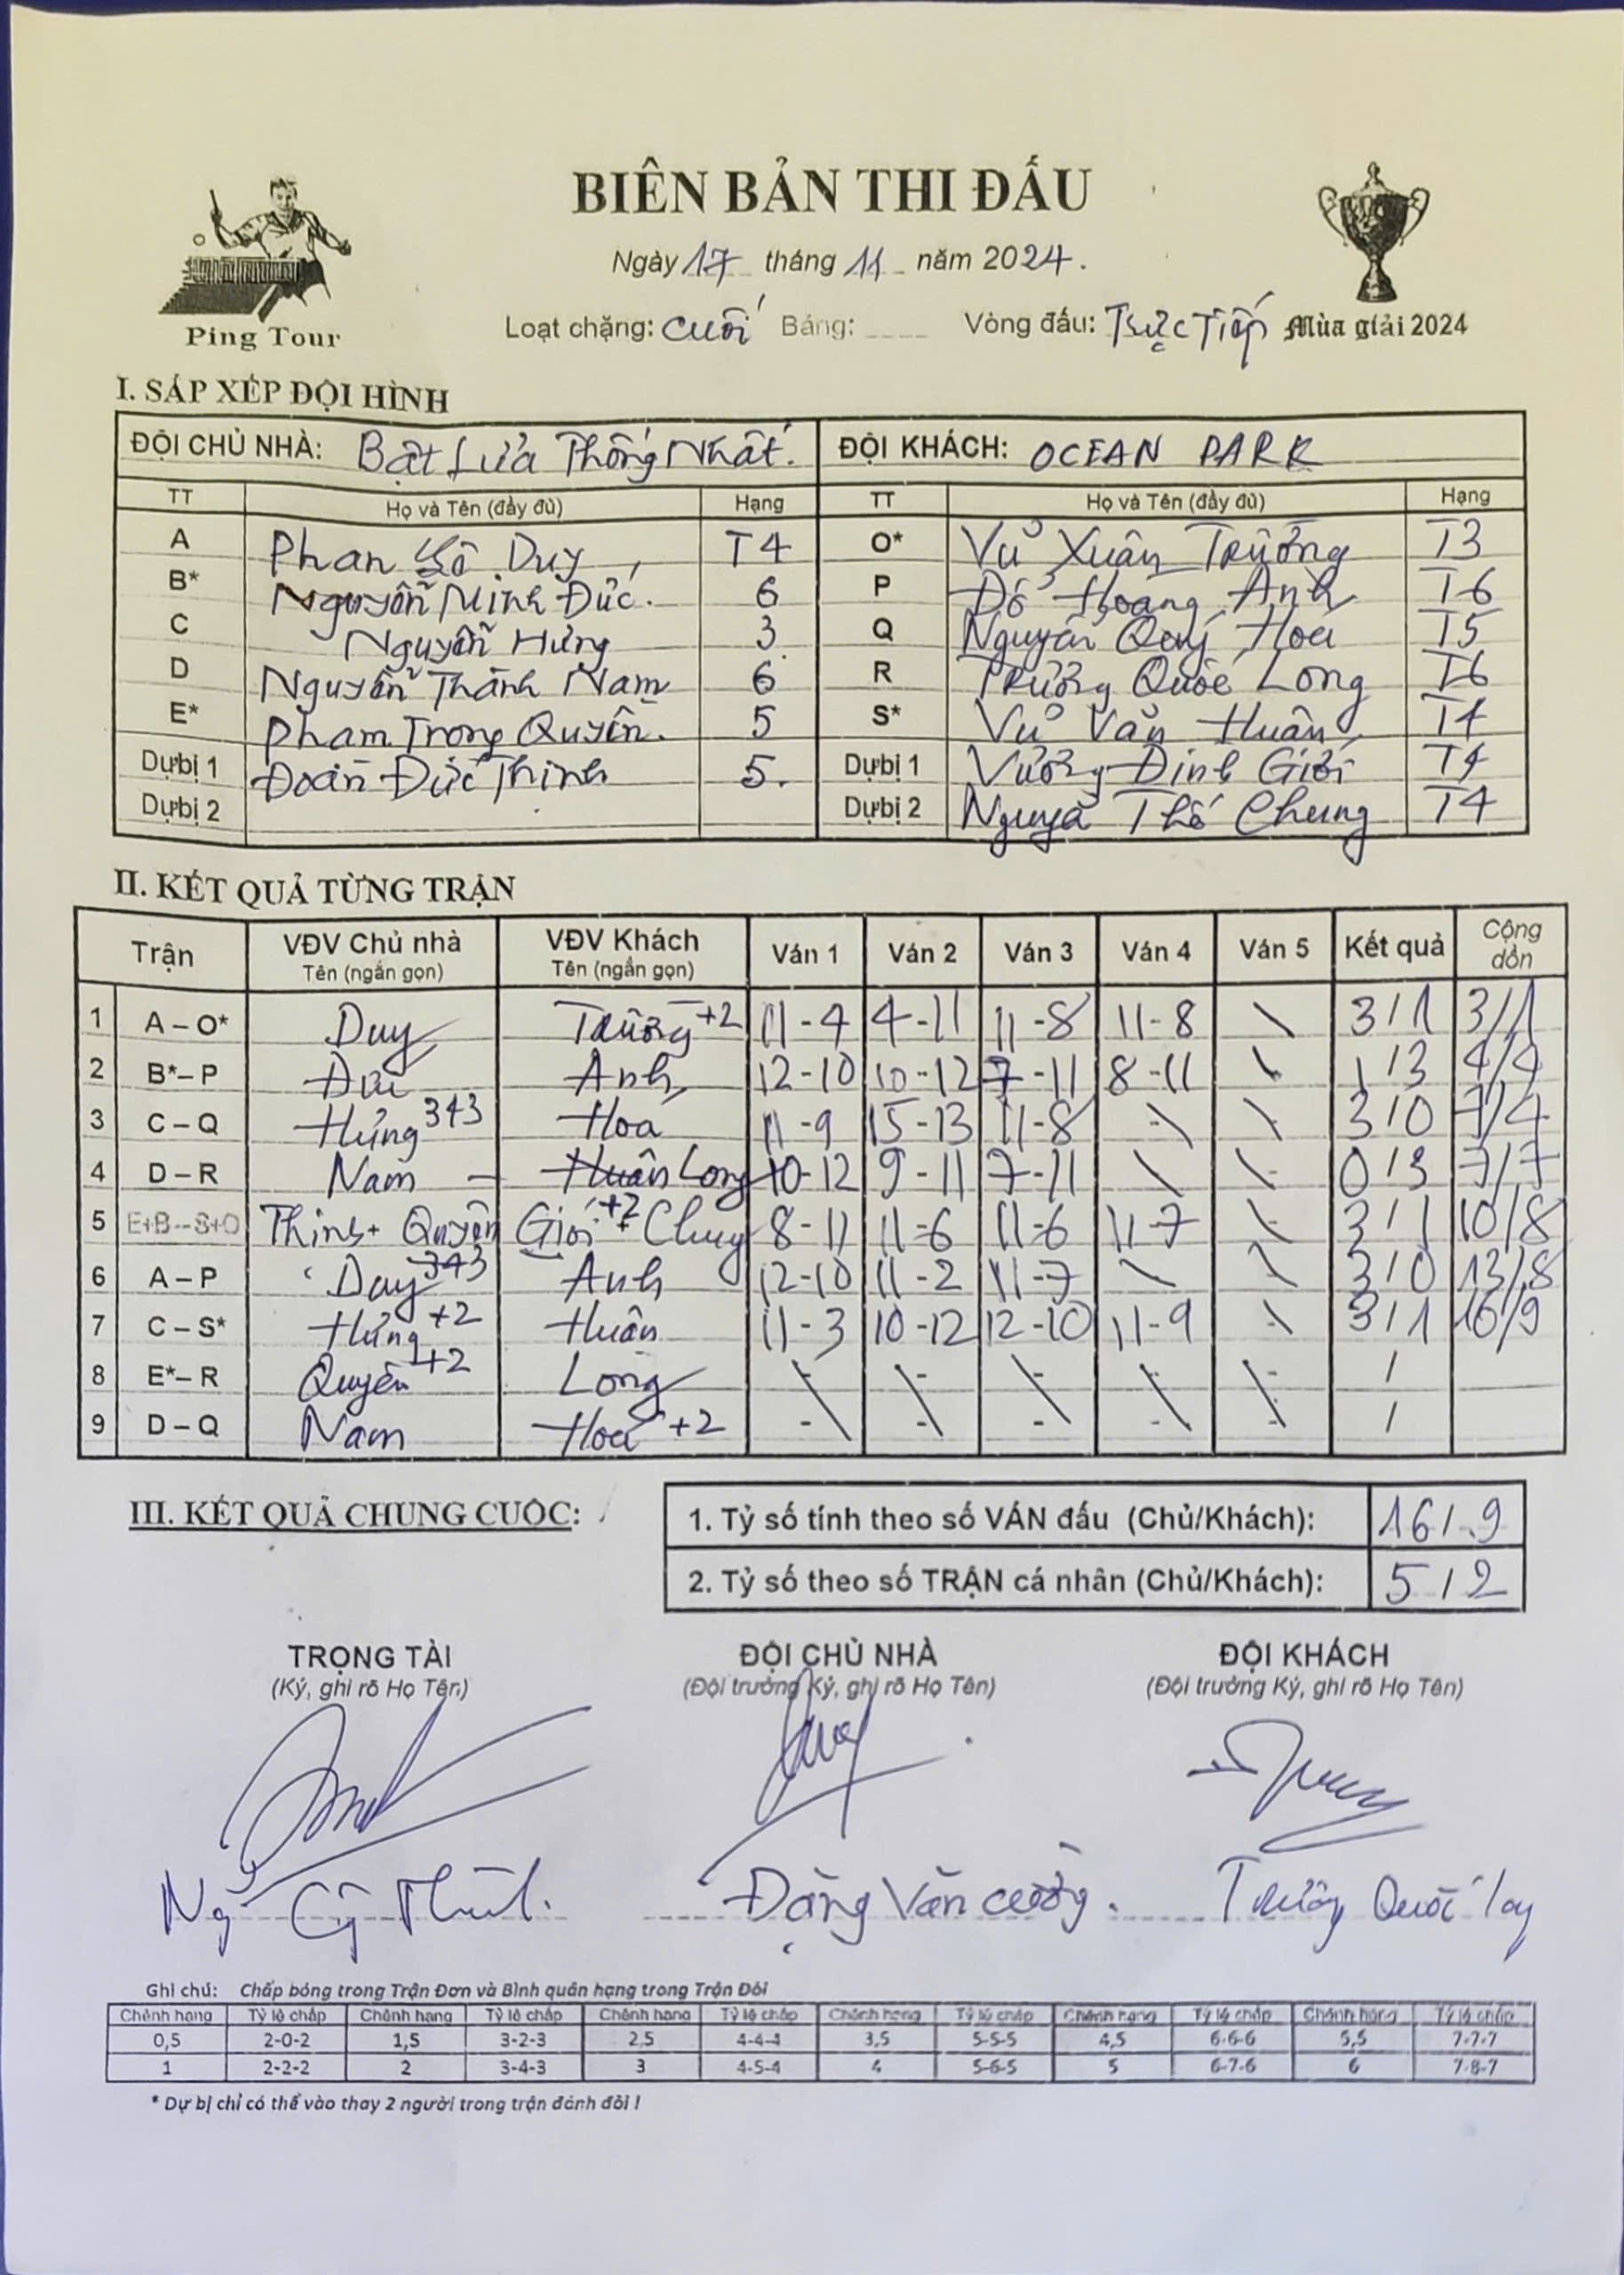 BIÊN BẢN THI ĐẤU
Ngày 17 tháng 11 năm 2024.
Ping Tour
Loạt chặng: Cuối Bảng: ____ Vòng đấu: Trực Tiếp Mùa giải 2024
I. SẮP XẾP ĐỘI HÌNH
ĐỘI CHỦ NHÀ: Bật Lửa Thống Nhất. ĐỘI KHÁCH: OCEAN PARK
TT Họ và Tên (đầy đủ) Hạng TT Họ và Tên (đầy đủ) Hạng
A Phan Duy T4 O* Vũ Xuân Trường T3
B* Nguyễn Minh Đức. 6 P Đỗ Hoàng Anh T6
C Nguyễn Hưng 3 Q Nguyễn Quý Hoá T5
D Nguyễn Thành Nam 6 R Trương Quốc Long T6
E* Phạm Trọng Quyền. 5 S* Vũ Văn Huân T4
Dự bị 1 Đoàn Đức Thịnh 5. Dự bị 1 Vương Đình Giới T4
Dự bị 2 Dự bị 2 Nguyễ Thế Chung T4
II. KẾT QUẢ TỪNG TRẬN
Trận VĐV Chủ nhà Tên (ngắn gọn) VĐV Khách Tên (ngắn gọn) Ván 1 Ván 2 Ván 3 Ván 4 Ván 5 Kết quả Cộng dồn
1 A – O* Duy Trường +2 11-4 4-11 11-8 11-8 \ 3/1 3/1
2 B*– P Đức Anh 12-10 10-12 7-11 8-11 \ 1/3 4/4
3 C – Q Hưng 343 Hoá 11-9 15-13 11-8 \ \ 3/0 7/4
4 D – R Nam – Huân Long 10-12 9-11 7-11 \ \ 0/3 7/7
5 E+B--S+O Thịnh+ Quyền Giới +2 + Chung 8-11 11-6 11-6 11-7 \ 3/1 10/8
6 A – P Duy 343 Anh 12-10 11-2 11-7 \ \ 3/0 13/8
7 C – S* Hưng +2 Huân 11-3 10-12 12-10 11-9 \ 3/1 16/9
8 E*– R Quyền +2 Long \ \ \ \ \ /
9 D – Q Nam Hoá +2 \ \ \ \ \ /
III. KẾT QUẢ CHUNG CUỘC:
1. Tỷ số tính theo số VÁN đấu (Chủ/Khách): 16/9
2. Tỷ số theo số TRẬN cá nhân (Chủ/Khách): 5/2
TRỌNG TÀI ĐỘI CHỦ NHÀ ĐỘI KHÁCH
(Ký, ghi rõ Họ Tên) (Đội trưởng Ký, ghi rõ Họ Tên) (Đội trưởng Ký, ghi rõ Họ Tên)
Đặng Văn Cường. Trương Quốc Long
Ghi chú: Chấp bóng trong Trận Đơn và Bình quân hạng trong Trận Đôi
Chênh hạng Tỷ lệ chấp Chênh hạng Tỷ lệ chấp Chênh hạng Tỷ lệ chấp Chênh hạng Tỷ lệ chấp Chênh hạng Tỷ lệ chấp Chênh hạng Tỷ lệ chấp
0,5 2-0-2 1,5 3-2-3 2,5 4-4-4 3,5 5-5-5 4,5 6-6-6 5,5 7-7-7
1 2-2-2 2 3-4-3 3 4-5-4 4 5-6-5 5 6-7-6 6 7-8-7
* Dự bị chỉ có thể vào thay 2 người trong trận đánh đôi !